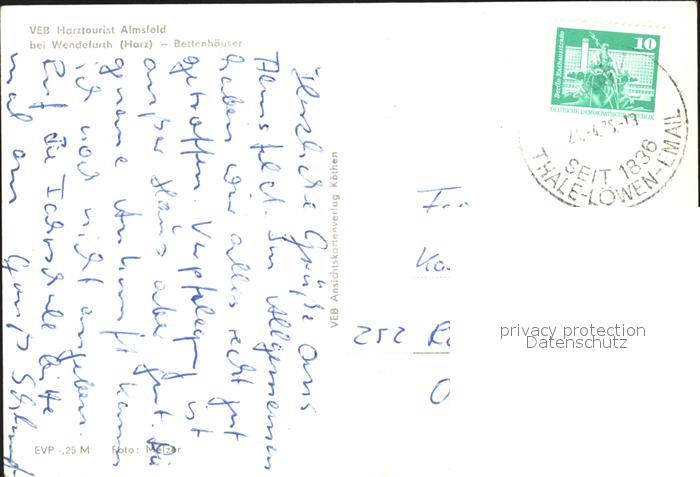 VEB Harztourist Almsfeld
bei Wendefurth (Harz) – Bettenhäuser
Herzliche Grüße aus
Almsfeld. Im Allgemeinen
haben wir alles recht gut
getroffen. Verpflegung ist
außer Haus aber gut. Die
genaue Ankunft kann
ich noch nicht angeben.
Ruf die Fahrschule bitte
mal an
VEB Ansichtskartenverlag Köthen
EVP -,25 M Foto: Melzer
10
Berlin Rathausstraße
DEUTSCHE DEMOKRATISCHE REPUBLIK
SEIT 1836
THALE-LÖWEN-EMAIL
252
privacy protection
Datenschutz